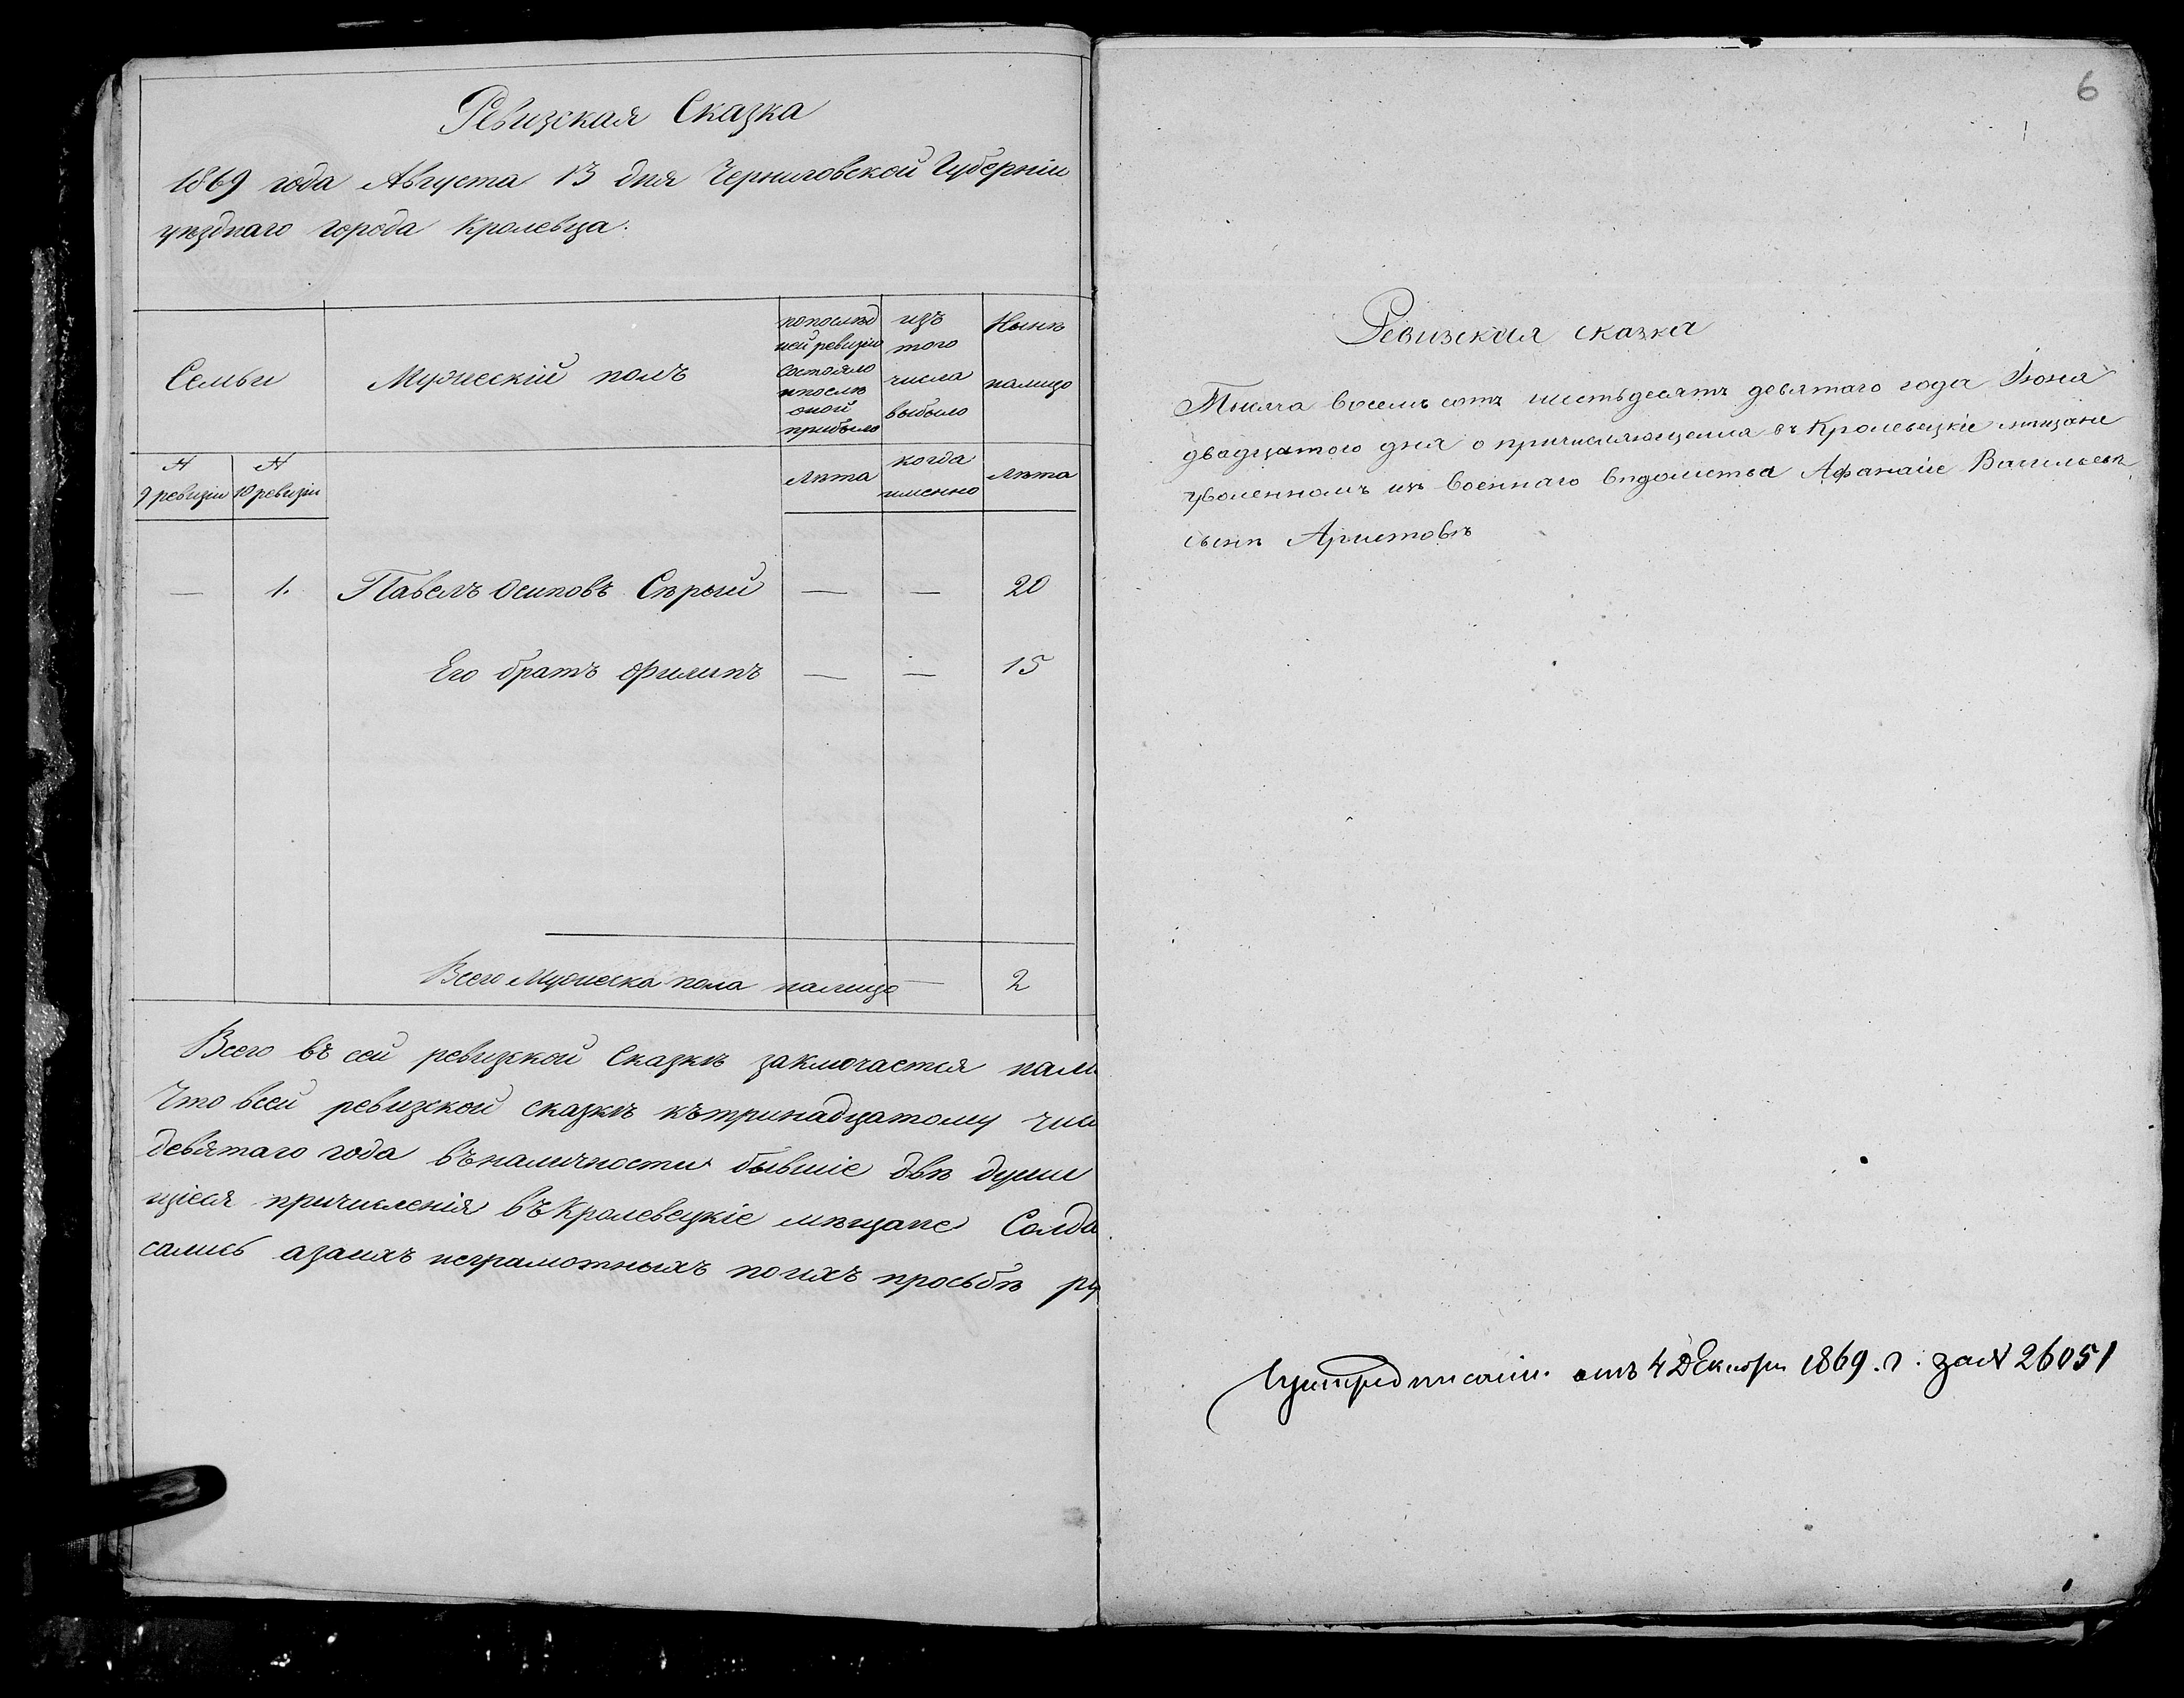 Ревизская Сказка
1869 года Августа 13 дня Черниговской Губерніи
уѣзднаго города Кролевца.
Семьи
Мужескій полъ
попослѣд
ней ревизіи
состояло
ипослѣ
оной
прибыло
изъ
того
числа
выбыло
Нынѣ
налицо
№
9 ревизіи
№
10 ревизіи
Лѣта
когда
именно
Лѣта
— 1. Павелъ Осиповъ Сѣрый — — 20
Его братъ Филипъ — — 15
Всего Мужеска пола налицо — 2
Всего въ сей ревизской Сказкѣ заключается нали
Что всей ревизской сказкѣ кътринадцатому чис
девятаго года въналичности бывшіе двѣ души
щіеся причисленія въ Кролевецкіе мѣщане Солда
сались азаихъ неграмотныхъ поихъ просьбѣ ру
6
Ревизская сказка
Тысяча восемь сотъ шестьдесятъ девятаго года Іюня
двадцатого дня о причисляющемся въ Кролевецкіе мѣщане
уволенномъ изъ военнаго вѣдомства Афанасіе Васильевѣ
сынѣ Аристовѣ
отъ 4 Декабря 1869. г. за № 26051